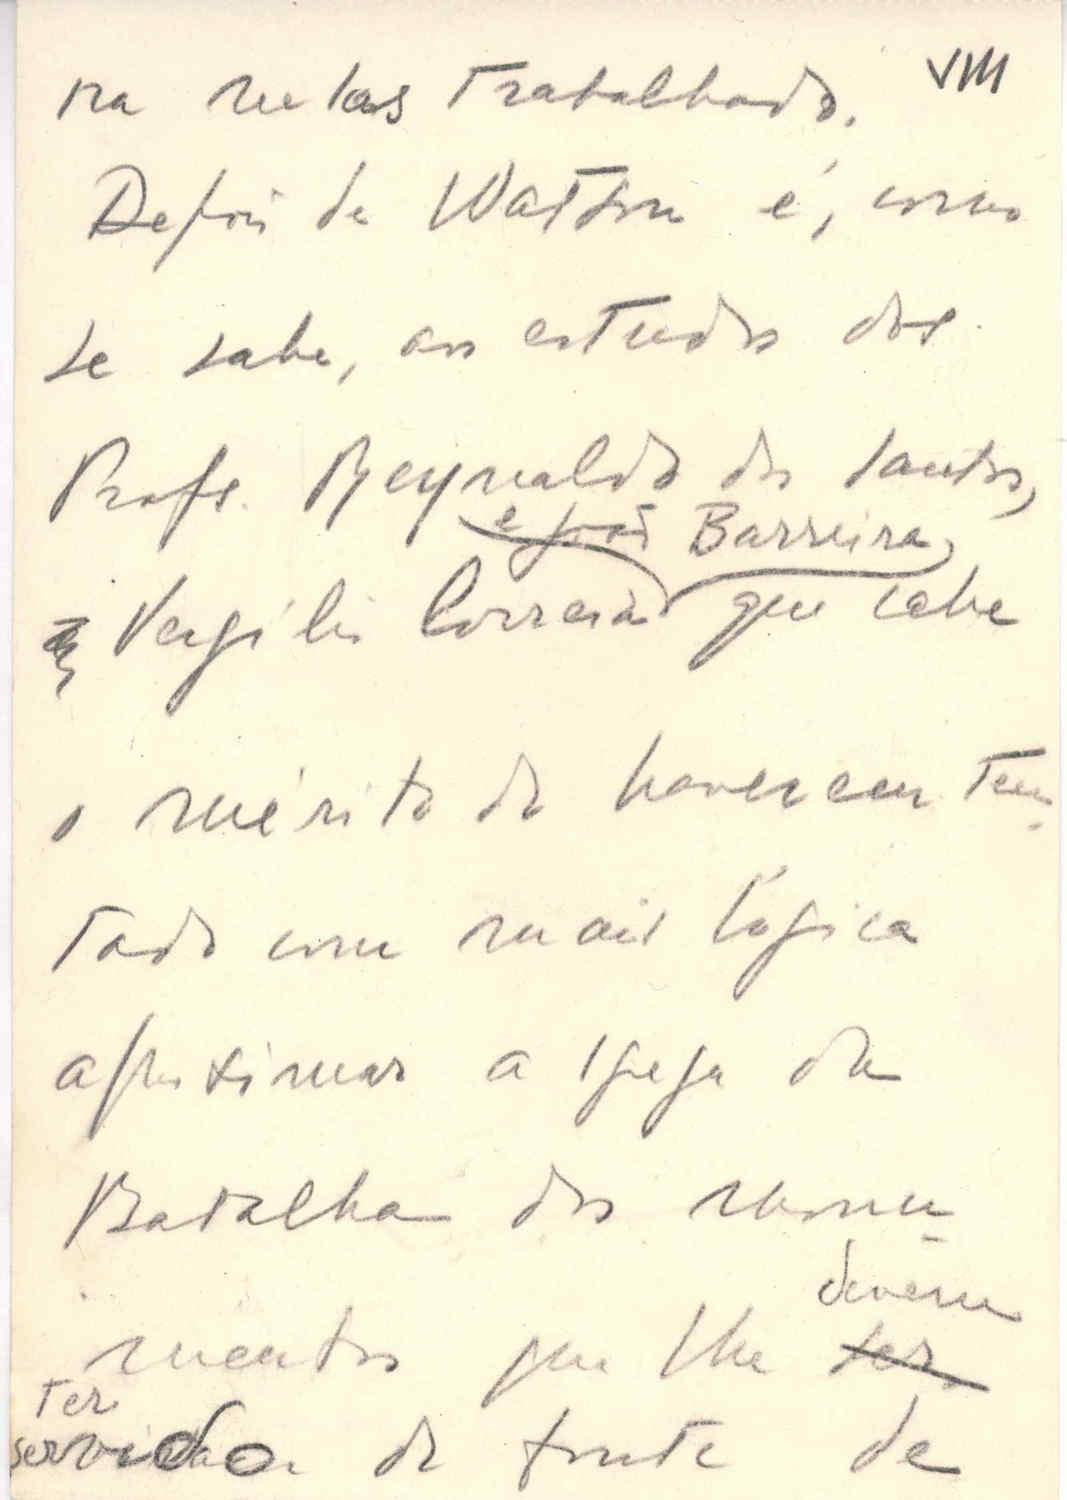 VIII
ra velas trabalhado.
Depois de Watson é, como
se sabe, aos estudos dos
Profs. Reynaldo dos Santos,
e João Barreira,
Vergílio Correia que cabe
o mérito de haverem ten-
tado com mais lógica
aproximar a Igreja da
Batalha dos monu-
mentos que lhe ser devem
ter
servido de fonte de